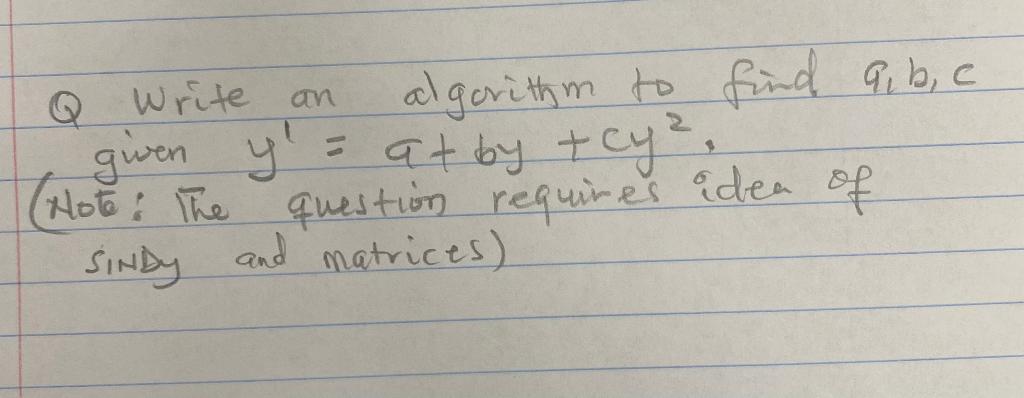 Q Write an algorithm to find a, b, c
given y' = a + by + cy².
(Note: The question requires idea of
SINDy and matrices)